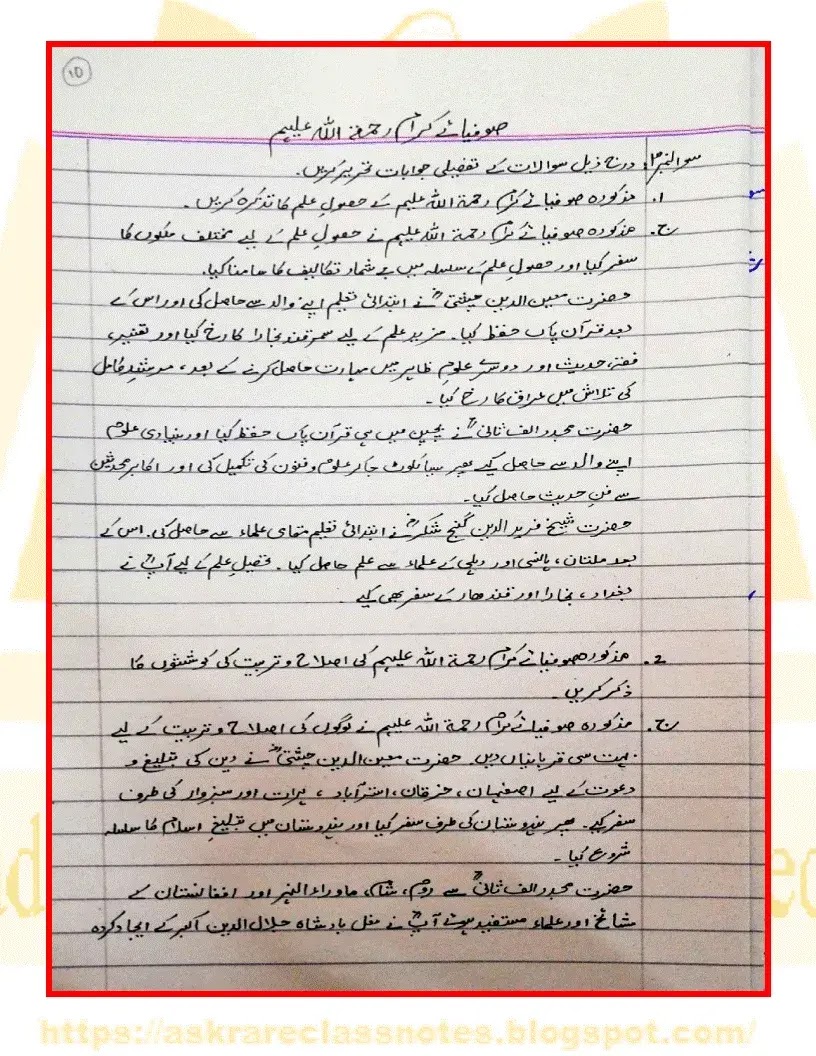 ۱۵
صوفیائے کرام رحمۃ اللہ علیہم
سوال نمبر ۳: درج ذیل سوالات کے تفصیلی جوابات تحریر کریں۔
۱. مذکورہ صوفیائے کرام رحمۃ اللہ علیہم کے حصولِ علم کا تذکرہ کریں۔
ج. مذکورہ صوفیائے کرام رحمۃ اللہ علیہم نے حصولِ علم کے لیے مختلف ملکوں کا
سفر کیا اور حصولِ علم کے سلسلہ میں بے شمار تکالیف کا سامنا کیا۔
حضرت معین الدین چشتیؒ نے ابتدائی تعلیم اپنے والد سے حاصل کی اور اس کے
بعد قرآن پاک حفظ کیا۔ مزید علم کے لیے سمرقند بخارا کا رخ کیا اور تفسیر،
فقہ، حدیث اور دوسرے علومِ ظاہر میں مہارت حاصل کرنے کے بعد، مرشدِ کامل
کی تلاش میں عراق کا رخ کیا۔
حضرت مجدد الف ثانیؒ نے بچپن میں ہی قرآن پاک حفظ کیا اور بنیادی علوم
اپنے والد سے حاصل کیے پھر سیالکوٹ جا کر علوم و فنون کی تکمیل کی اور اکابر محدثین
سے فنِ حدیث حاصل کیا۔
حضرت شیخ فرید الدین گنج شکرؒ نے ابتدائی تعلیم مقامی علماء سے حاصل کی۔ اس کے
بعد ملتان، ہانسی اور دہلی کے علماء سے علم حاصل کیا۔ تحصیلِ علم کے لیے آپؒ نے
بغداد، بخارا اور قندھار کے سفر بھی کیے۔
2. مذکورہ صوفیائے کرام رحمۃ اللہ علیہم کی اصلاح و تربیت کی کوششوں کا
ذکر کریں۔
ج. مذکورہ صوفیائے کرام رحمۃ اللہ علیہم نے لوگوں کی اصلاح و تربیت کے لیے
بہت سی قربانیاں دیں۔ حضرت معین الدین چشتیؒ نے دین کی تبلیغ و
دعوت کے لیے اصفہان، خرقان، استرآباد، ہرات اور سبزوار کی طرف
سفر کیے۔ پھر ہندوستان کی طرف سفر کیا اور ہندوستان میں تبلیغِ اسلام کا سلسلہ
شروع کیا۔
حضرت مجدد الف ثانیؒ سے روم، شام، ماوراء النہر اور افغانستان کے
مشائخ اور علماء مستفید ہوئے آپؒ نے مغل بادشاہ جلال الدین اکبر کے ایجاد کردہ
https://askrareclassnotes.blogspot.com/